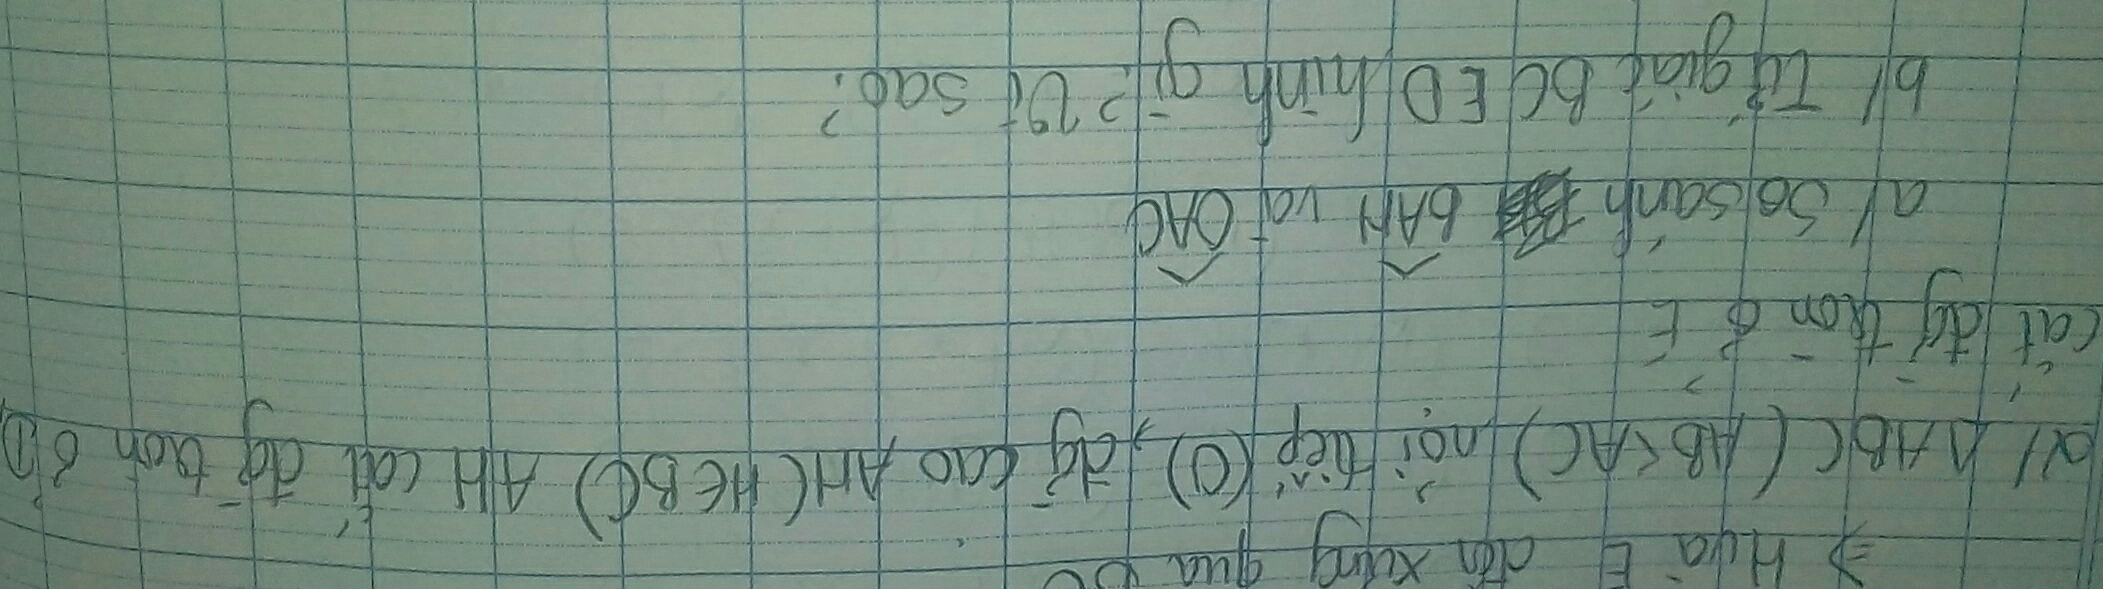 => H và E đối xứng qua BC
a/ Δ ABC (AB < AC) nội tiếp (O), đg cao AH (H ∈ BC) AH cắt đg tròn ở D,
cắt đg tròn ở E
a/ So sánh BAH với OAC
b/ Tứ giác BCED hình gì? Vì sao?